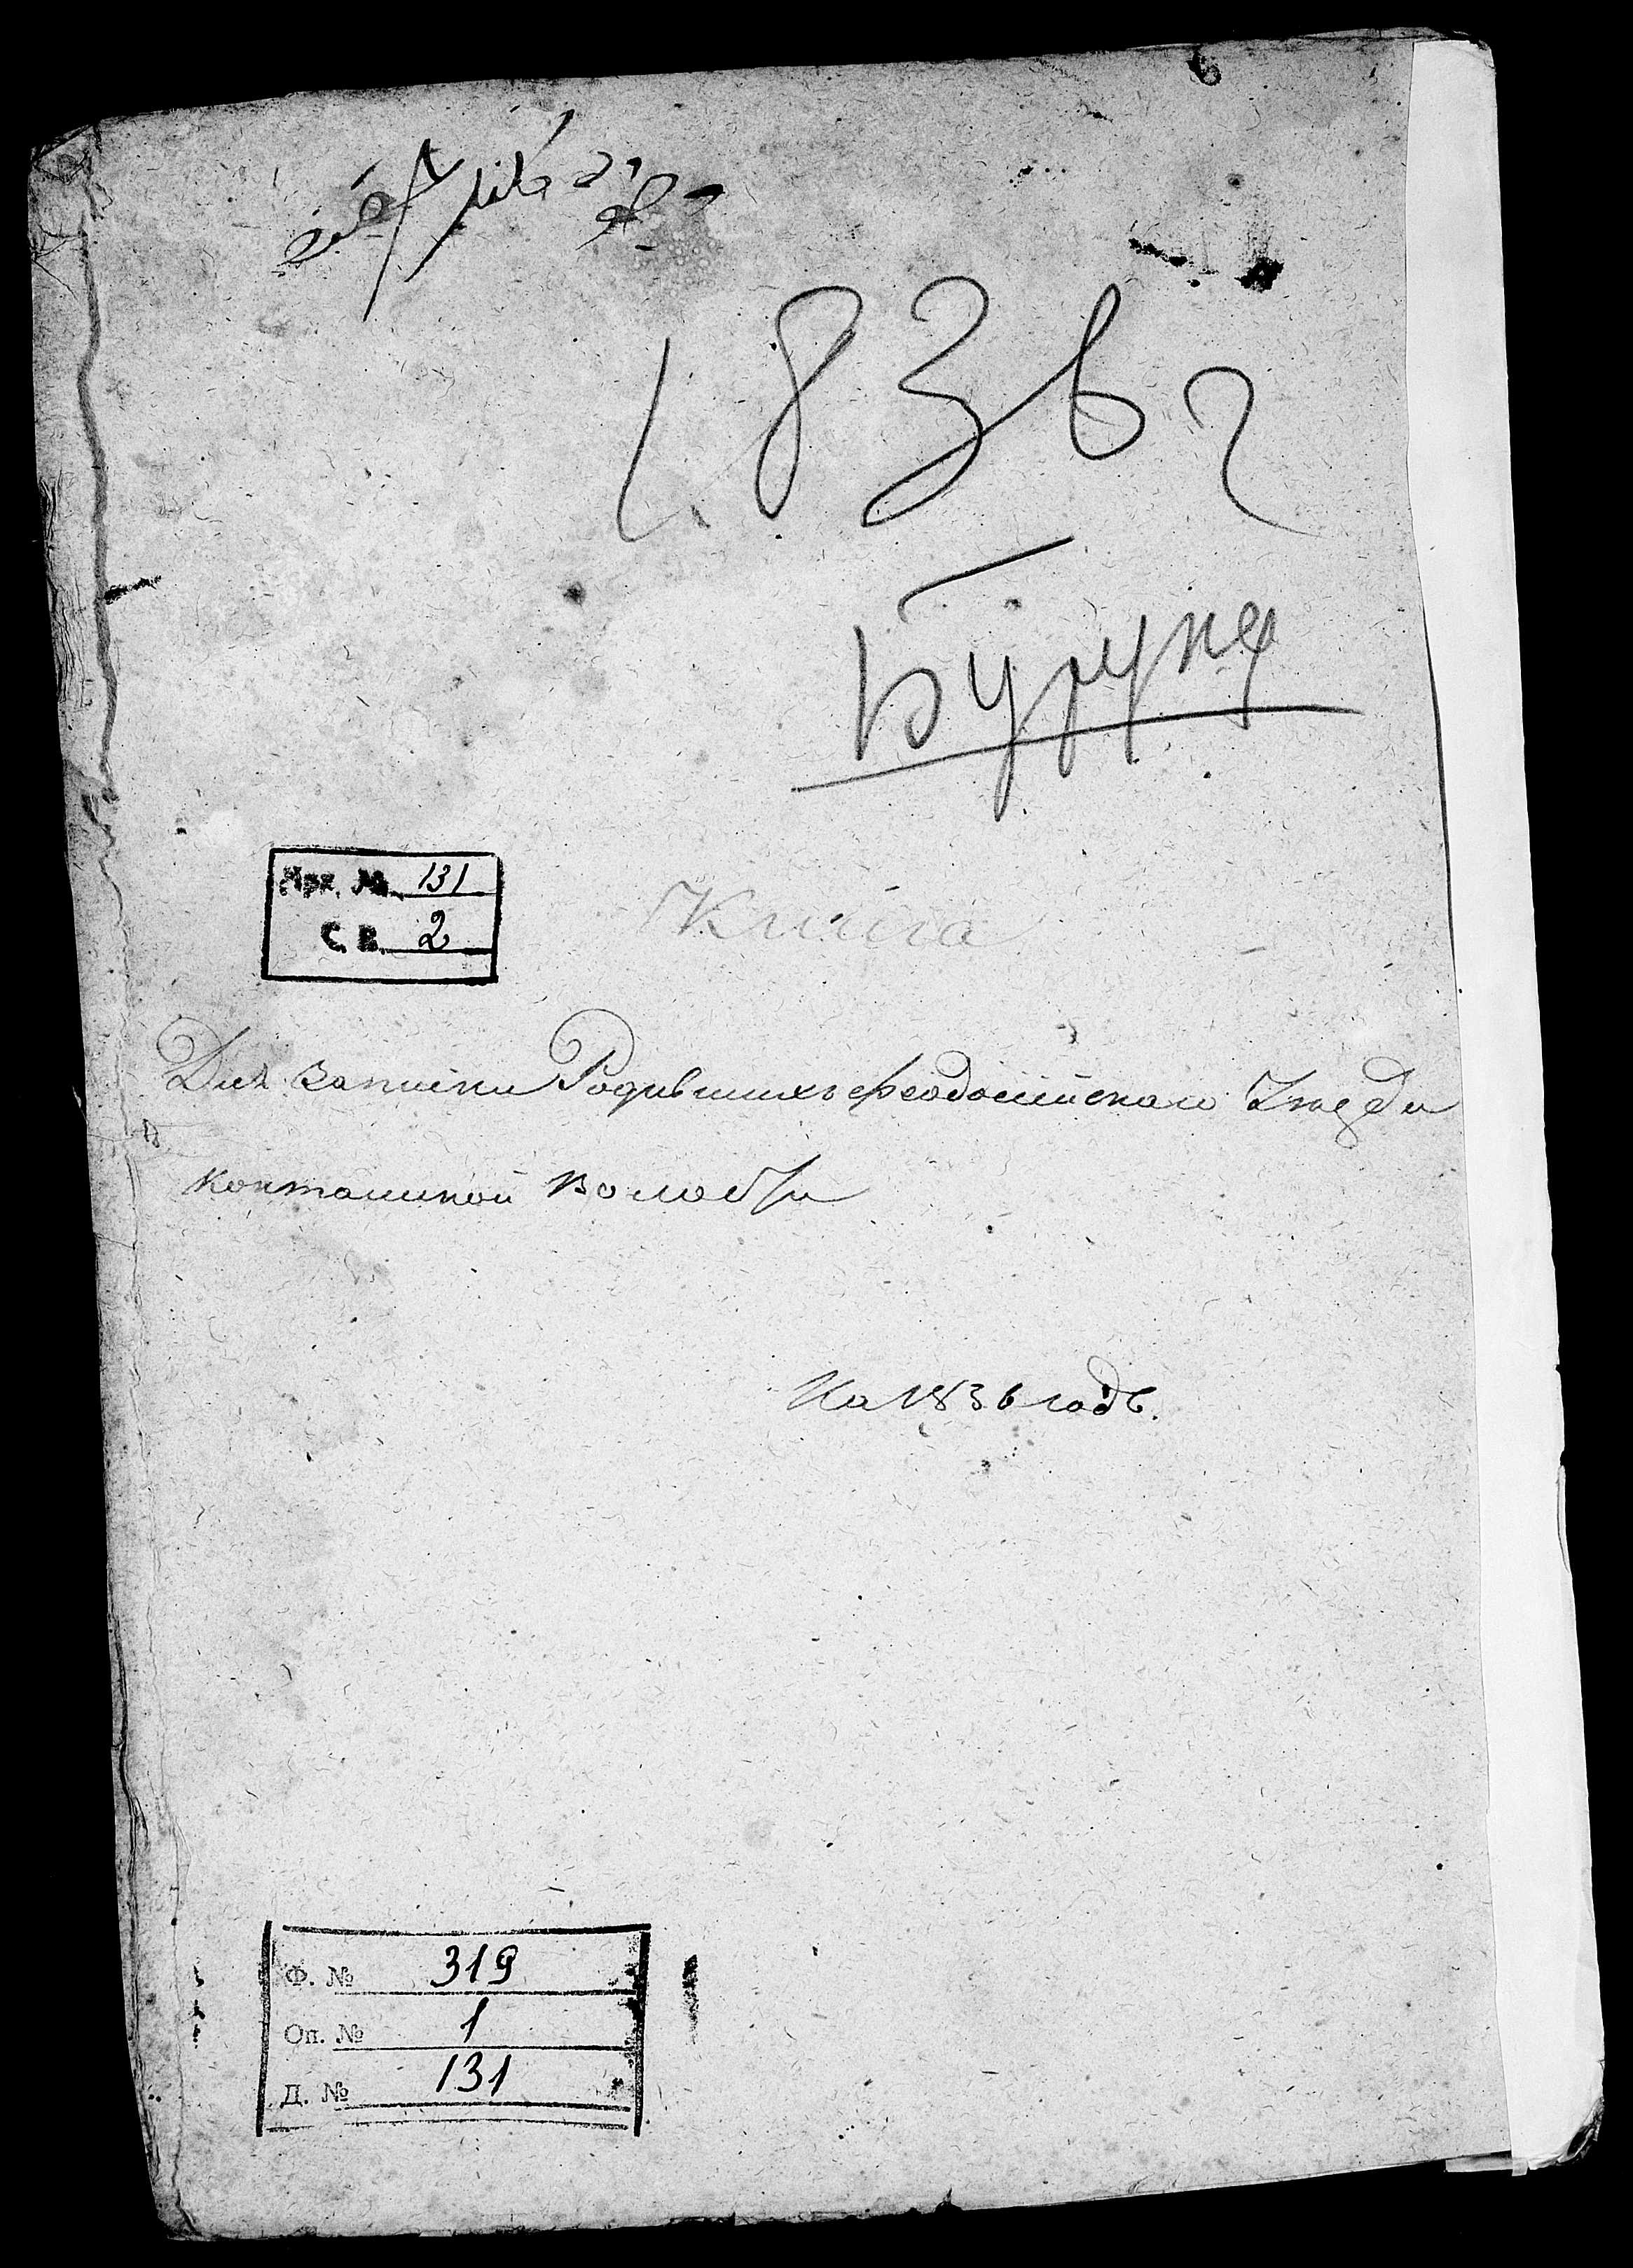 1836 г
Арх. № 131
С. В. 2
Книга
Для записки Родившихъ Феодосийскаго Уезда
Конталикой Волости
На 1836 годъ.
Ф. № 319
Оп. № 1
Д. № 131